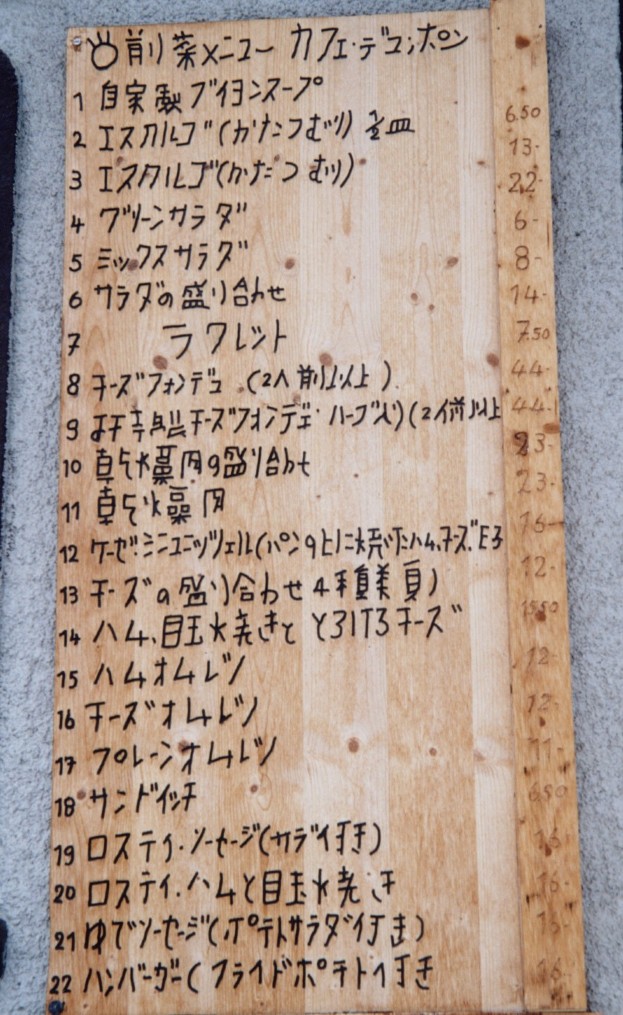 削り菜メニュー カフェ・デュ・ポン
1 自家製ブイヨンスープ 6.50
2 エスカルゴ(かたつむり) 半皿 13.-
3 エスカルゴ(かたつむり) 22.-
4 グリーンサラダ 6.-
5 ミックスサラダ 8.-
6 サラダの盛り合わせ 14.-
7 ラクレット 7.50
8 チーズフォンデュ (2人前以上) 44.-
9 チーズフォンデュ・ハーブ入り(2人前以上 44.-
10 の盛り合わせ 23.-
11 肉 23.-
12 ケーゼ・シニュニッツェル(パンの上に焼いたハム、チーズ、 16.-
13 チーズの盛り合わせ 4種類) 12.-
14 ハム、目玉焼きととろけるチーズ 15.50
15 ハムオムレツ 12.-
16 チーズオムレツ 12.-
17 プレーンオムレツ 11.-
18 サンドイッチ 6.50
19 ロスティ・ソーセージ(サラダ付き) 16.-
20 ロスティ・ハムと目玉焼き 16.-
21 ゆでソーセージ(ポテトサラダ付き)
22 ハンバーガー(フライドポテト付き